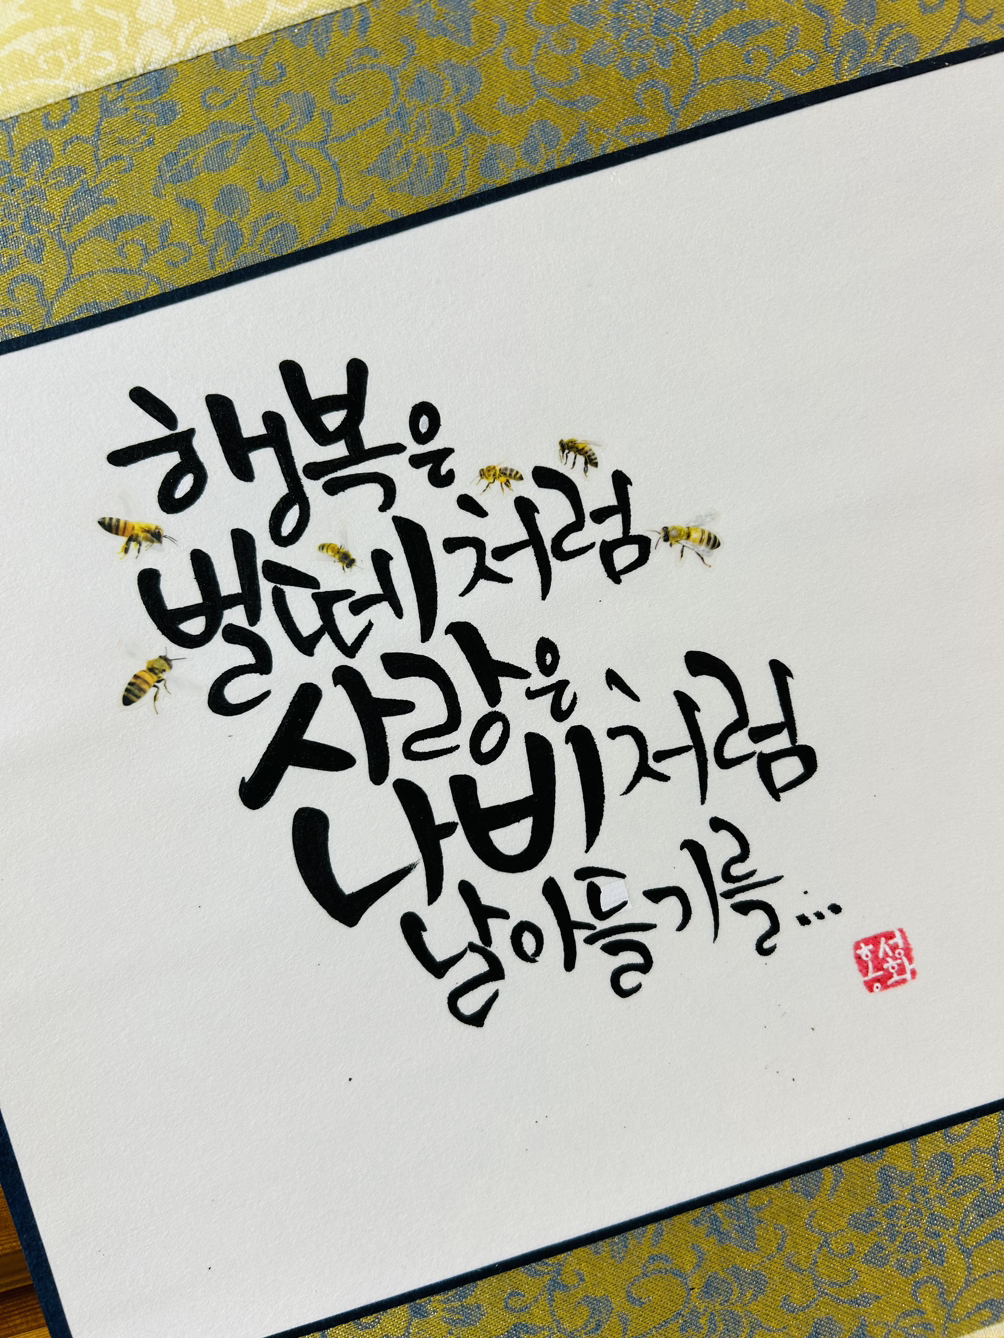 행복은
벌떼처럼
사랑은
나비처럼
날아들기를...
홍성화